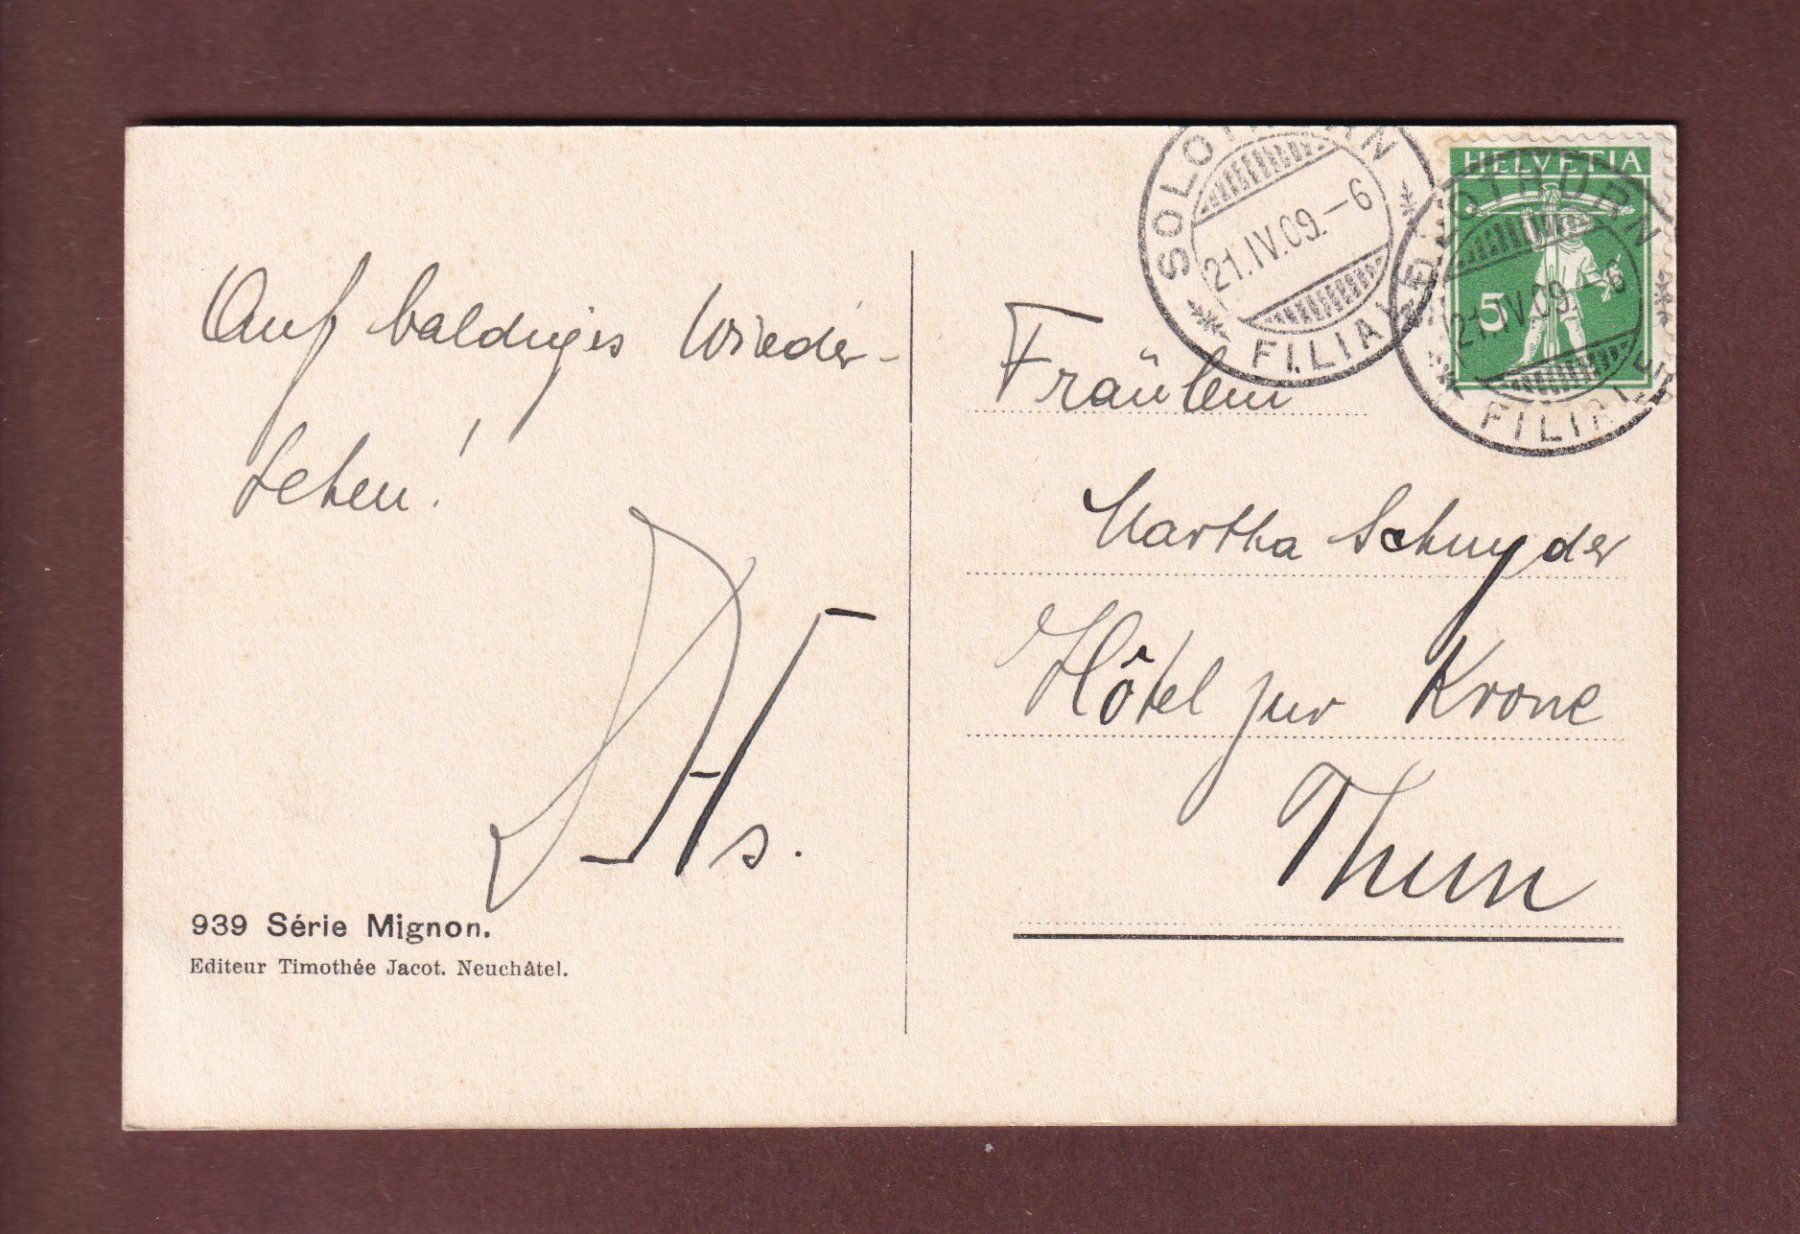 Auf baldiges Wieder-
sehen!
Hs.
939 Série Mignon.
Editeur Timothée Jacot. Neuchâtel.
SOLOTHURN
21.IV.09.–6
FILIALE
HELVETIA
5
SOLOTHURN
21.IV.09.–6
FILIALE
Fräulein
Martha Schnyder
Hôtel zur Krone
Thun